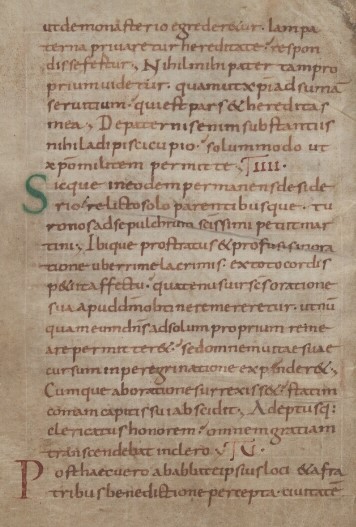 ut de monasterio egrederetur. lampa
terna privaretur hereditate; respon
disse fertur, Nihil mihi pater tam pro
prium videtur. quam ut xpi ad sumā
servitium. qui est pars & hereditas
mea, De paternis enim substantiis
nihil adipisci cupio. solummodo ut
xpō militem permitte, IIII.
Sicque in eodem permanens deside
rio. relicto solo parentibusque. tu
ronos ad sepulchrum scissimi petit mar
tini, Ibique prostratus & profusis in ora
tione uberrime lacrimis. ex toto cordis
p&iit affectu. quatenus
sua apud dm obtinere mereretur. ut nū
quam eum dns ad solum proprium reme
are permitter&. sed omne vitae suae
cursum in peregrinatione expender&,
Cumque ab oratione surrexiss&. statim
comam capitis sui abscidit, Adeptusq:
clericatus honorem. omnem gratiam
transcendebat in clero, V.
Post haec vero ab abbate ipsius loci & a fra
tribus benedictione percepta. civitatē